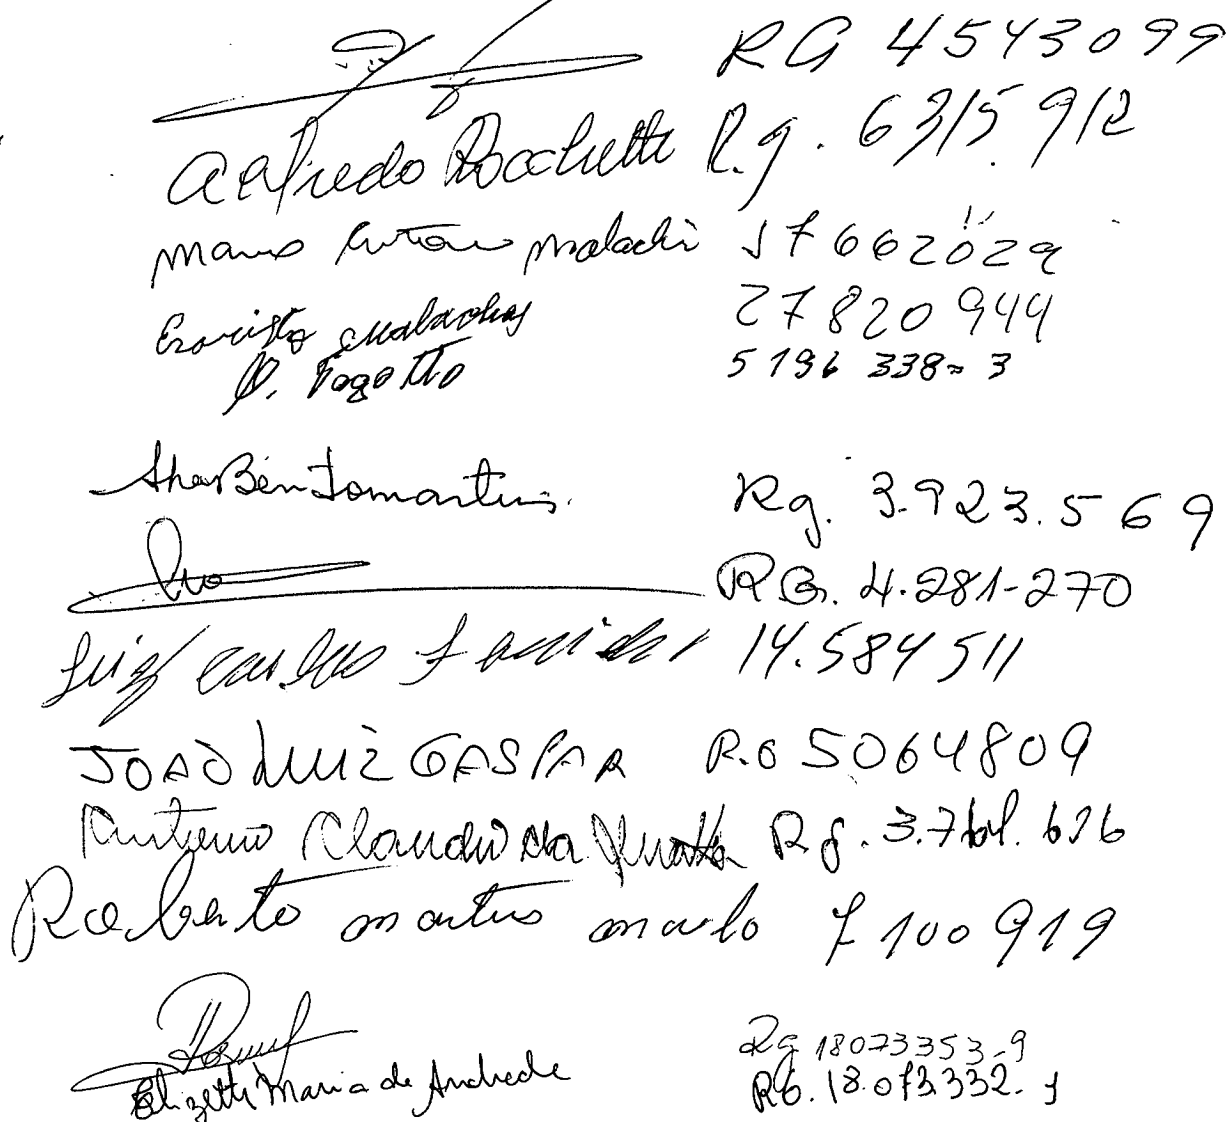 RG 4543099
Alfredo Rocchetti R.g. 6315912
Antonio Malachi 17662029
Evaristo Malachias 27820944
Fogotto 5196 338-3
Rg. 3.923.569
RG. 4.281-270
Luiz Carlos 14.584511
JOAO LUIZ GASPAR R.G 5064809
Antonio Claudio da Rg. 3.761.626
Roberto Martins 7100919
Rg 18073353-9
Elizette Maria de Andrade RG. 18.073.332-1